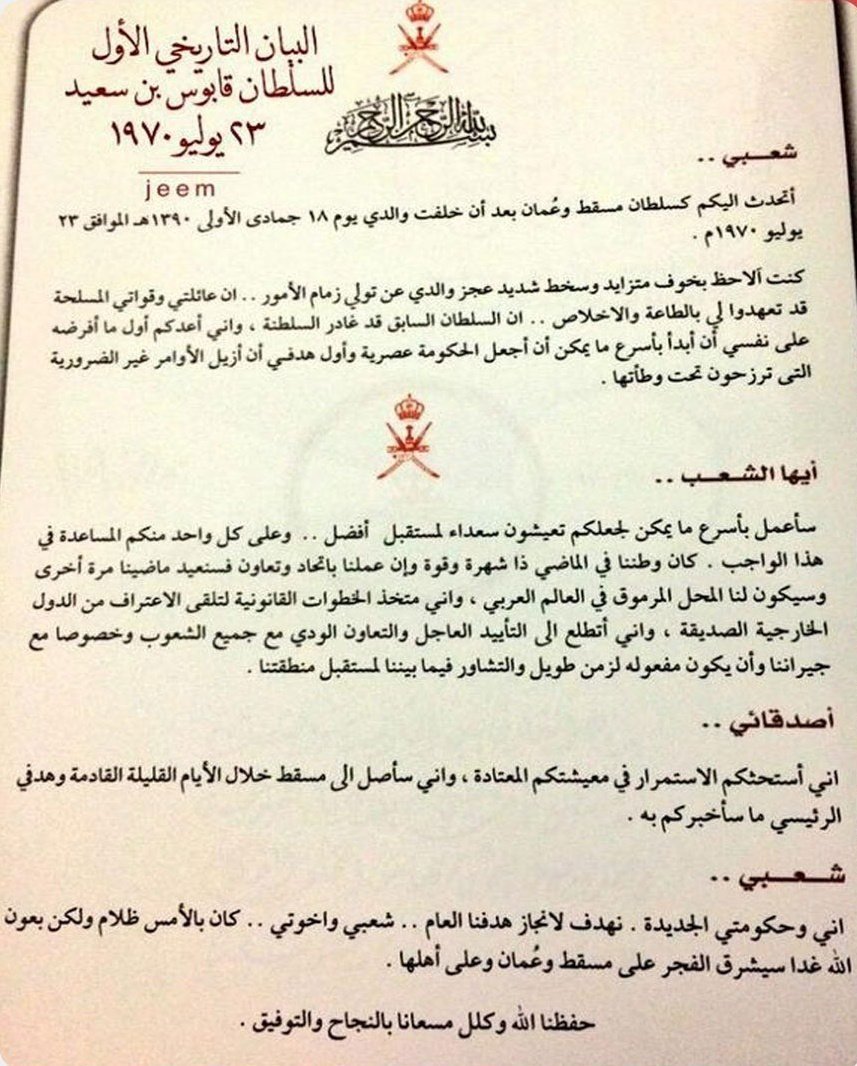 البيان التاريخي الأول
للسلطان قابوس بن سعيد
٢٣ يوليو ١٩٧٠
jeem
بسم الله الرحمن الرحيم
شعـــبي ..
أتحدث اليكم كسلطان مسقط وعُمان بعد أن خلفت والدي يوم ١٨ جمادى الأولى ١٣٩٠هـ الموافق ٢٣
يوليو ١٩٧٠م .
كنت آلاحظ بخوف متزايد وسخط شديد عجز والدي عن تولي زمام الأمور .. ان عائلتي وقواتي المسلحة
قد تعهدوا لي بالطاعة والاخلاص .. ان السلطان السابق قد غادر السلطنة ، واني أعدكم أول ما أفرضه
على نفسي أن أبدأ بأسرع ما يمكن أن أجعل الحكومة عصرية وأول هدفي أن أزيل الأوامر غير الضرورية
التى ترزحون تحت وطأتها .
أيها الشـعـــب ..
سأعمل بأسرع ما يمكن لجعلكم تعيشون سعداء لمستقبل أفضل .. وعلى كل واحد منكم المساعدة في
هذا الواجب . كان وطننا في الماضي ذا شهرة وقوة وإن عملنا باتحاد وتعاون فسنعيد ماضينا مرة أخرى
وسيكون لنا المحل المرموق في العالم العربي ، واني متخذ الخطوات القانونية لتلقى الاعتراف من الدول
الخارجية الصديقة ، واني أتطلع الى التأييد العاجل والتعاون الودي مع جميع الشعوب وخصوصا مع
جيراننا وأن يكون مفعوله لزمن طويل والتشاور فيما بيننا لمستقبل منطقتنا .
أصدقائي ..
اني أستحثكم الاستمرار في معيشتكم المعتادة ، واني سأصل الى مسقط خلال الأيام القليلة القادمة وهدفي
الرئيسي ما سأخبركم به .
شـــعـــبي ..
اني وحكومتي الجديدة . نهدف لانجاز هدفنا العام .. شعبي واخوتي .. كان بالأمس ظلام ولكن بعون
الله غدا سيشرق الفجر على مسقط وعُمان وعلى أهلها .
حفظنا الله وكلل مسعانا بالنجاح والتوفيق .